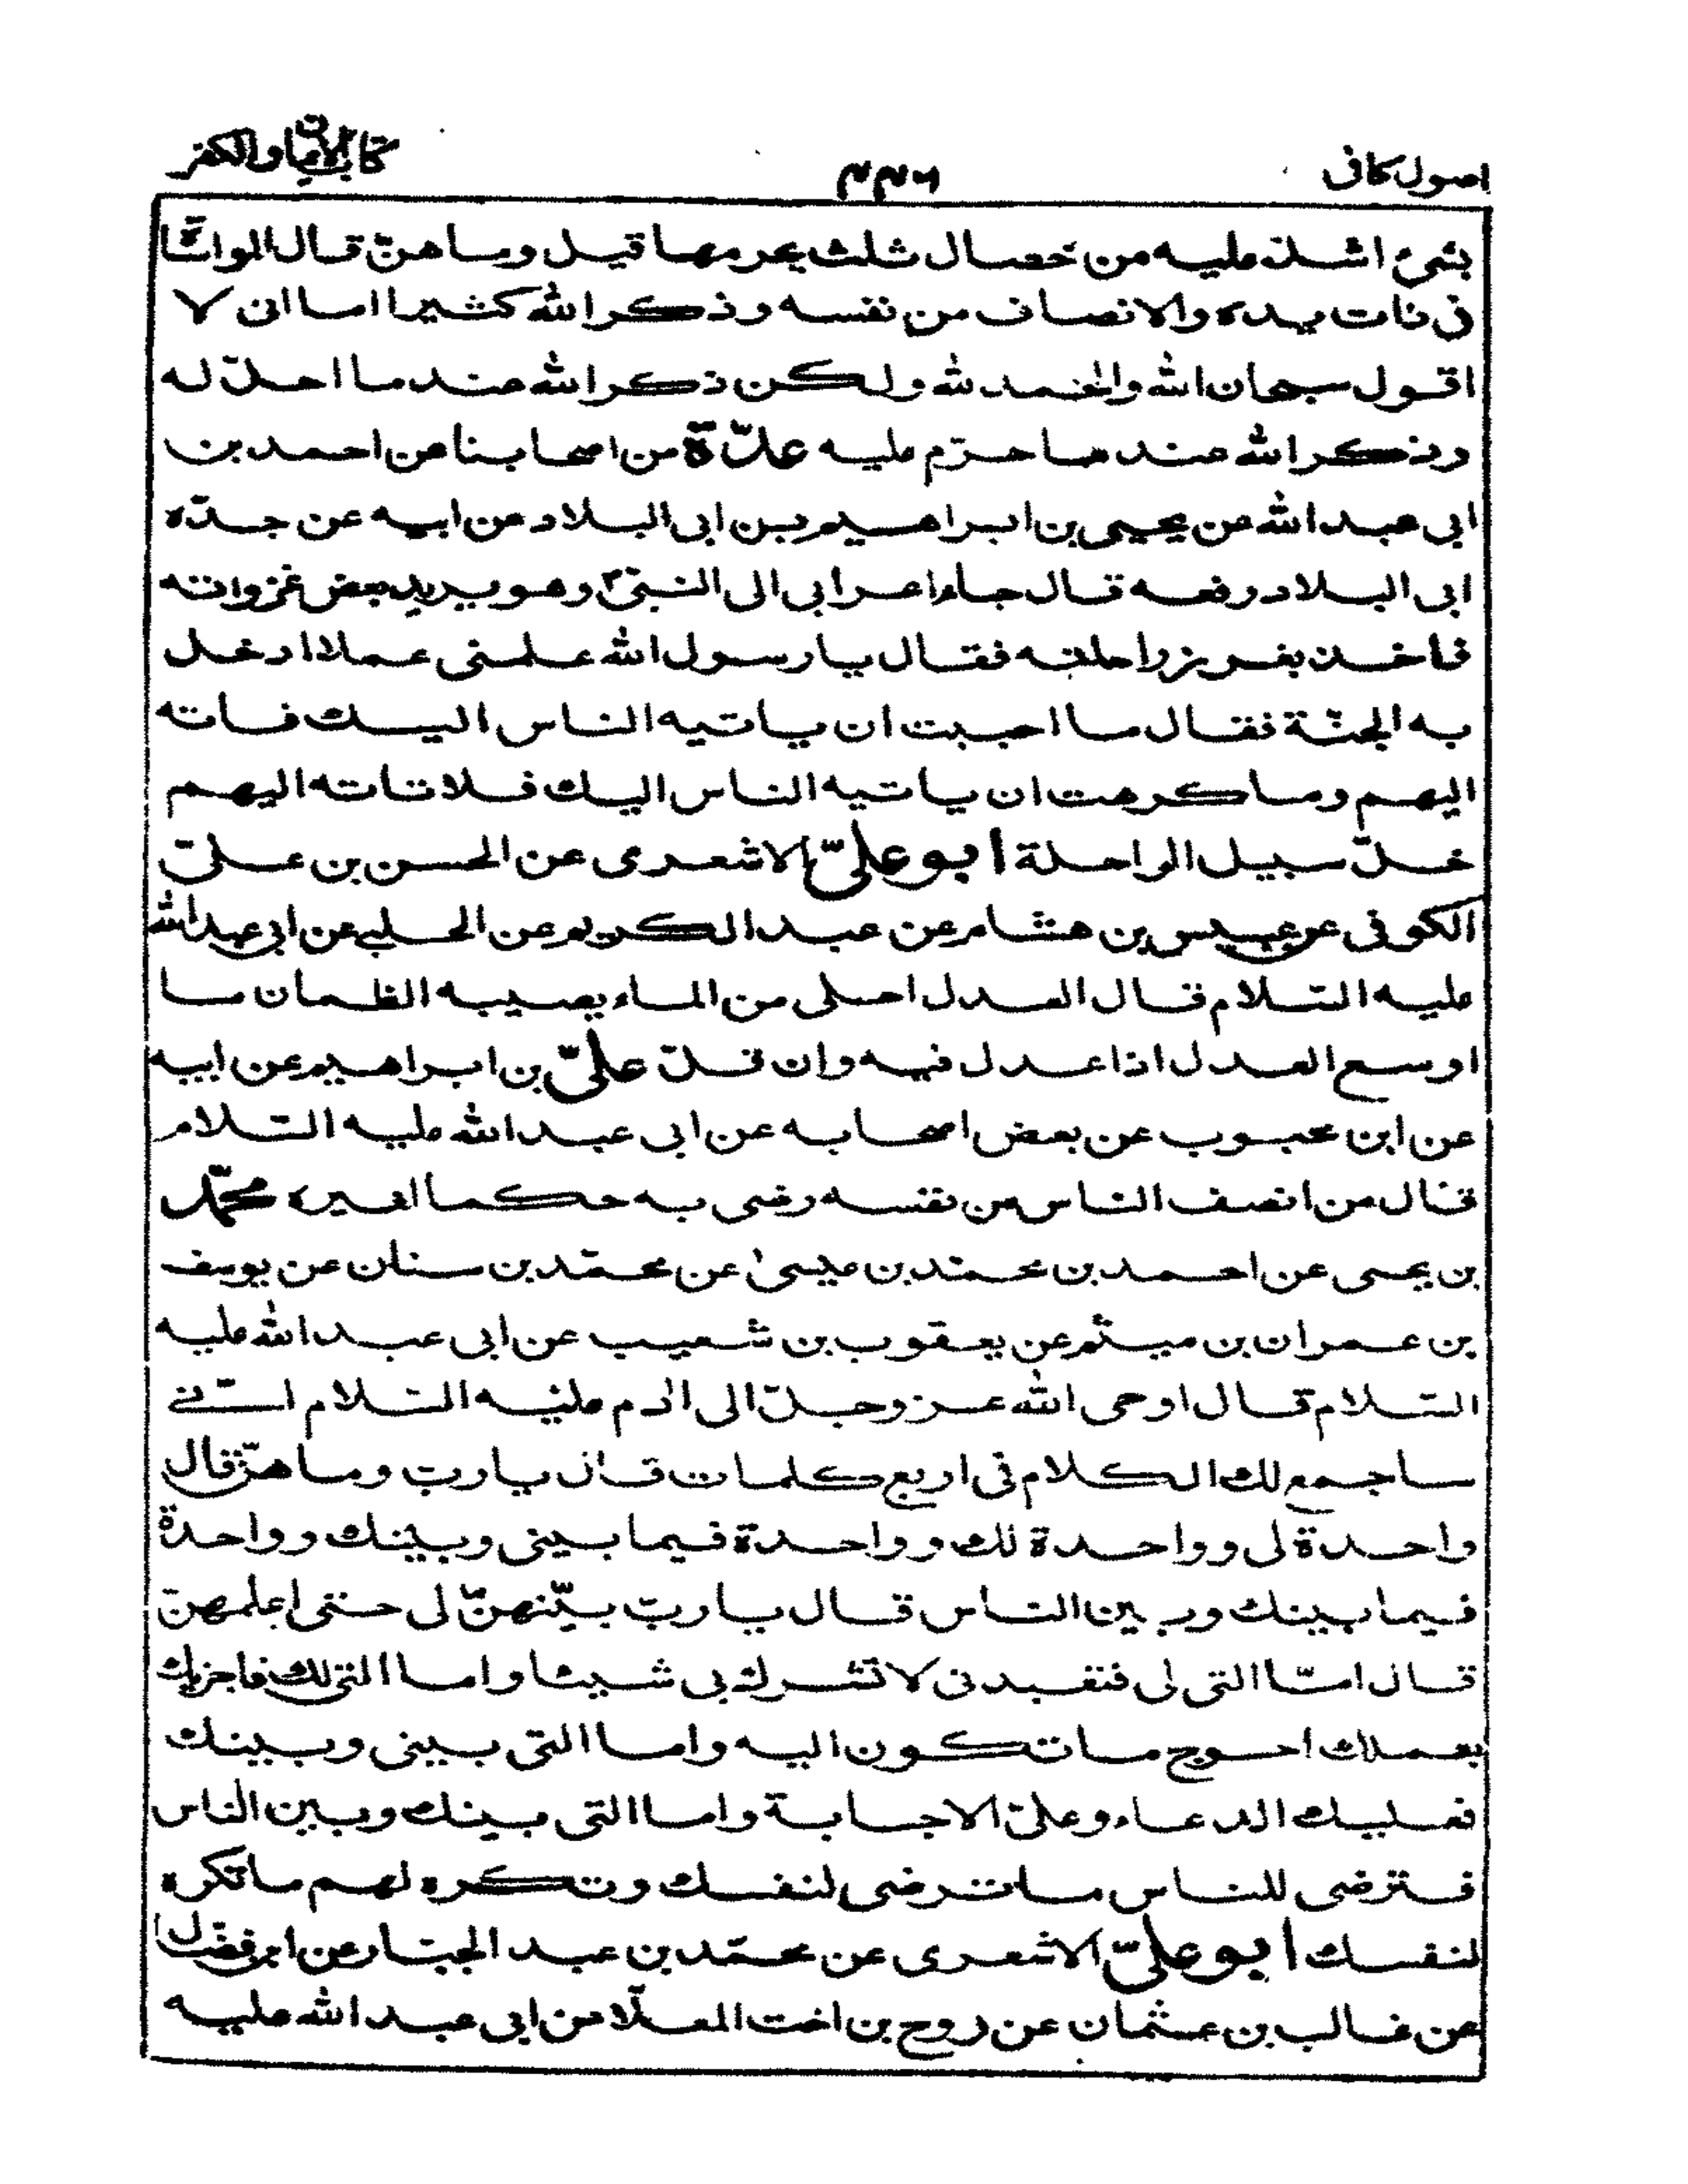 اصول كافى
٤٣٦
كتاب الايمان والكفر
بشئ اشدّ عليه من خصال ثلث يحرمها قيل وما هنّ قال المواساة
فى ذات يده والانصاف من نفسه وذكر الله كثيرا اما انى لا
اقول سبحان الله والحمد لله ولكن ذكر الله عند ما احلّ له
وذكر الله عند ما حرّم عليه عدّة من اصحابنا عن احمد بن
ابى عبد الله عن يحيى بن ابراهيم بن ابى البلاد عن ابيه عن جدّه
ابى البلاد رفعه قال جاء اعرابى الى النبىّ وهو يريد بعض غزواته
فاخذ بغرز راحلته فقال يا رسول الله علمنى عملا ادخل
به الجنّة فقال ما احببت ان ياتيه الناس اليك فاته
اليهم وما كرهت ان ياتيه الناس اليك فلا تاته اليهم
خلّ سبيل الراحلة ابو علىّ الاشعرى عن الحسن بن علىّ
الكوفى عن عبيس بن هشام عن عبد الكريم عن الحلبى عن ابى عبد الله
عليه السّلام قال العدل احلى من الماء يصيبه الظمان ما
اوسع العدل اذا عدل فيه وان قلّ علىّ بن ابراهيم عن ابيه
عن ابن محبوب عن بعض اصحابه عن ابى عبد الله عليه السّلام
قال من انصف الناس من نفسه رضى به حكما لغيره محمّد
بن يحيى عن احمد بن محمّد بن عيسىٰ عن محمّد بن سنان عن يوسف
بن عمران بن ميثم عن يعقوب بن شعيب عن ابى عبد الله عليه
السّلام قال اوحى الله عز وجلّ الى اٰدم عليه السّلام انّى
ساجمع لك الكلام فى اربع كلمات قال يا ربّ وما هنّ قال
واحدة لى وواحدة لك وواحدة فيما بينى وبينك وواحدة
فيما بينك وبين النّاس قال يا ربّ بيّنهنّ لى حتّى اعلمهنّ
قال امّا التى لى فتعبدنى لا تشرك بى شيئا واما التى لك فاجزيك
بعملك احوج ما تكون اليه واما التى بينى وبينك
فعليك الدعاء وعلىّ الاجابة واما التى بينك وبين الناس
فترضى للناس ما ترضى لنفسك وتكره لهم ما تكره
لنفسك ابو علىّ الاشعرى عن محمّد بن عبد الجبّار عن ابن فضّال
عن غالب بن عثمان عن روح بن اخت المعلّا عن ابى عبد الله عليه